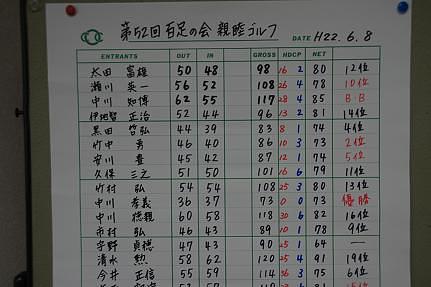 第52回 百足の会 親睦ゴルフ DATE H22.6.8
ENTRANTS OUT IN GROSS HDCP NET
太田 富雄 50 48 98 16 2 80 12位
瀬川 英一 56 52 108 26 4 78 10位
中川 知博 62 55 117 28 4 85 B·B
伊地智 正治 52 44 96 13 2 81 14位
黒田 啓弘 44 39 83 8 1 74 4位
竹中 勇 46 40 86 10 3 73 2位
安川 豊 45 42 87 12 1 74 5位
久保 三之 51 50 101 16 6 79 11位
竹村 弘 54 54 108 25 3 80 13位
中川 孝義 36 37 73 0 0 73 優勝
中川 徳親 60 58 118 30 6 82 16位
市村 弘 46 43 89 10 1 78 9位
宇野 貞徳 47 43 90 25 1 64 —
清水 勲 58 62 120 25 4 91 19位
今井 正信 55 59 114 36 3 75 6位